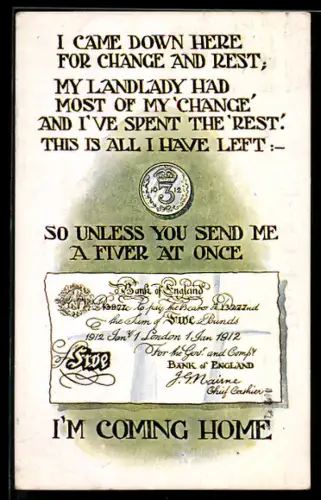 I CAME DOWN HERE
FOR CHANGE AND REST;
MY LANDLADY HAD
MOST OF MY 'CHANGE'
AND I'VE SPENT THE 'REST'.
THIS IS ALL I HAVE LEFT :—
3
1912
SO UNLESS YOU SEND ME
A FIVER AT ONCE
Bank of England
to pay the Bearer
the Sum of Five Pounds
1912 Jany 1 London 1 Jan 1912
For the Govr and Compy
BANK OF ENGLAND
Five
J. Nairne
Chief Cashier
I'M COMING HOME